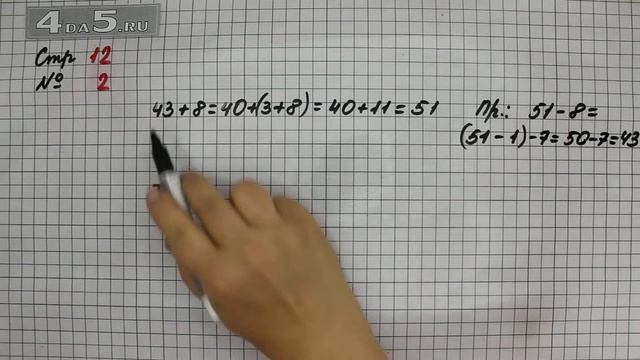 4DA5.RU
Стр 12
№ 2
43+8=40+(3+8)=40+11=51
Пр.: 51-8=
(51-1)-7=50-7=43